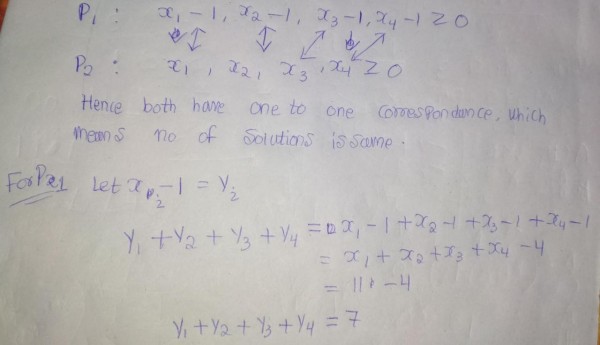 P₁ : x₁ - 1, x₂ - 1, x₃ - 1, x₄ - 1 ≥ 0
P₂ : x₁, x₂, x₃, x₄ ≥ 0
Hence both have one to one correspondance, which
means no of solutions is same.
Let xᵢ - 1 = Yᵢ
Y₁ + Y₂ + Y₃ + Y₄ = x₁ - 1 + x₂ - 1 + x₃ - 1 + x₄ - 1
= x₁ + x₂ + x₃ + x₄ - 4
= 11 - 4
Y₁ + Y₂ + Y₃ + Y₄ = 7